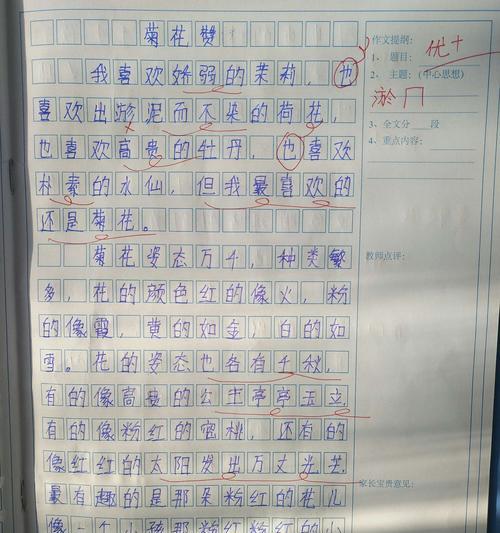 菊花赞
我喜欢娇强的茉莉,也
喜欢出淤泥而不染的荷花,
也喜欢高贵的牡丹,也喜欢
朴素的水仙,但我最喜欢的
还是菊花。
菊花姿态万千,种类繁
多,花的颜色红的像火,粉
的像霞,黄的如金,白的如
雪。花的姿态也各有千秋,
有的像高贵的公主亭亭玉立,
有的像粉红的蜜桃,还有的
像红红的太阳发出万丈光芒
最有趣的是那朵粉红的花儿
像一个小孩那粉红的小
作文提纲:
优+
1、题目:
2、主题:(中心思想)
淤
3、全文分 段
4、重点内容:
教师点评:
家长宝贵意见: